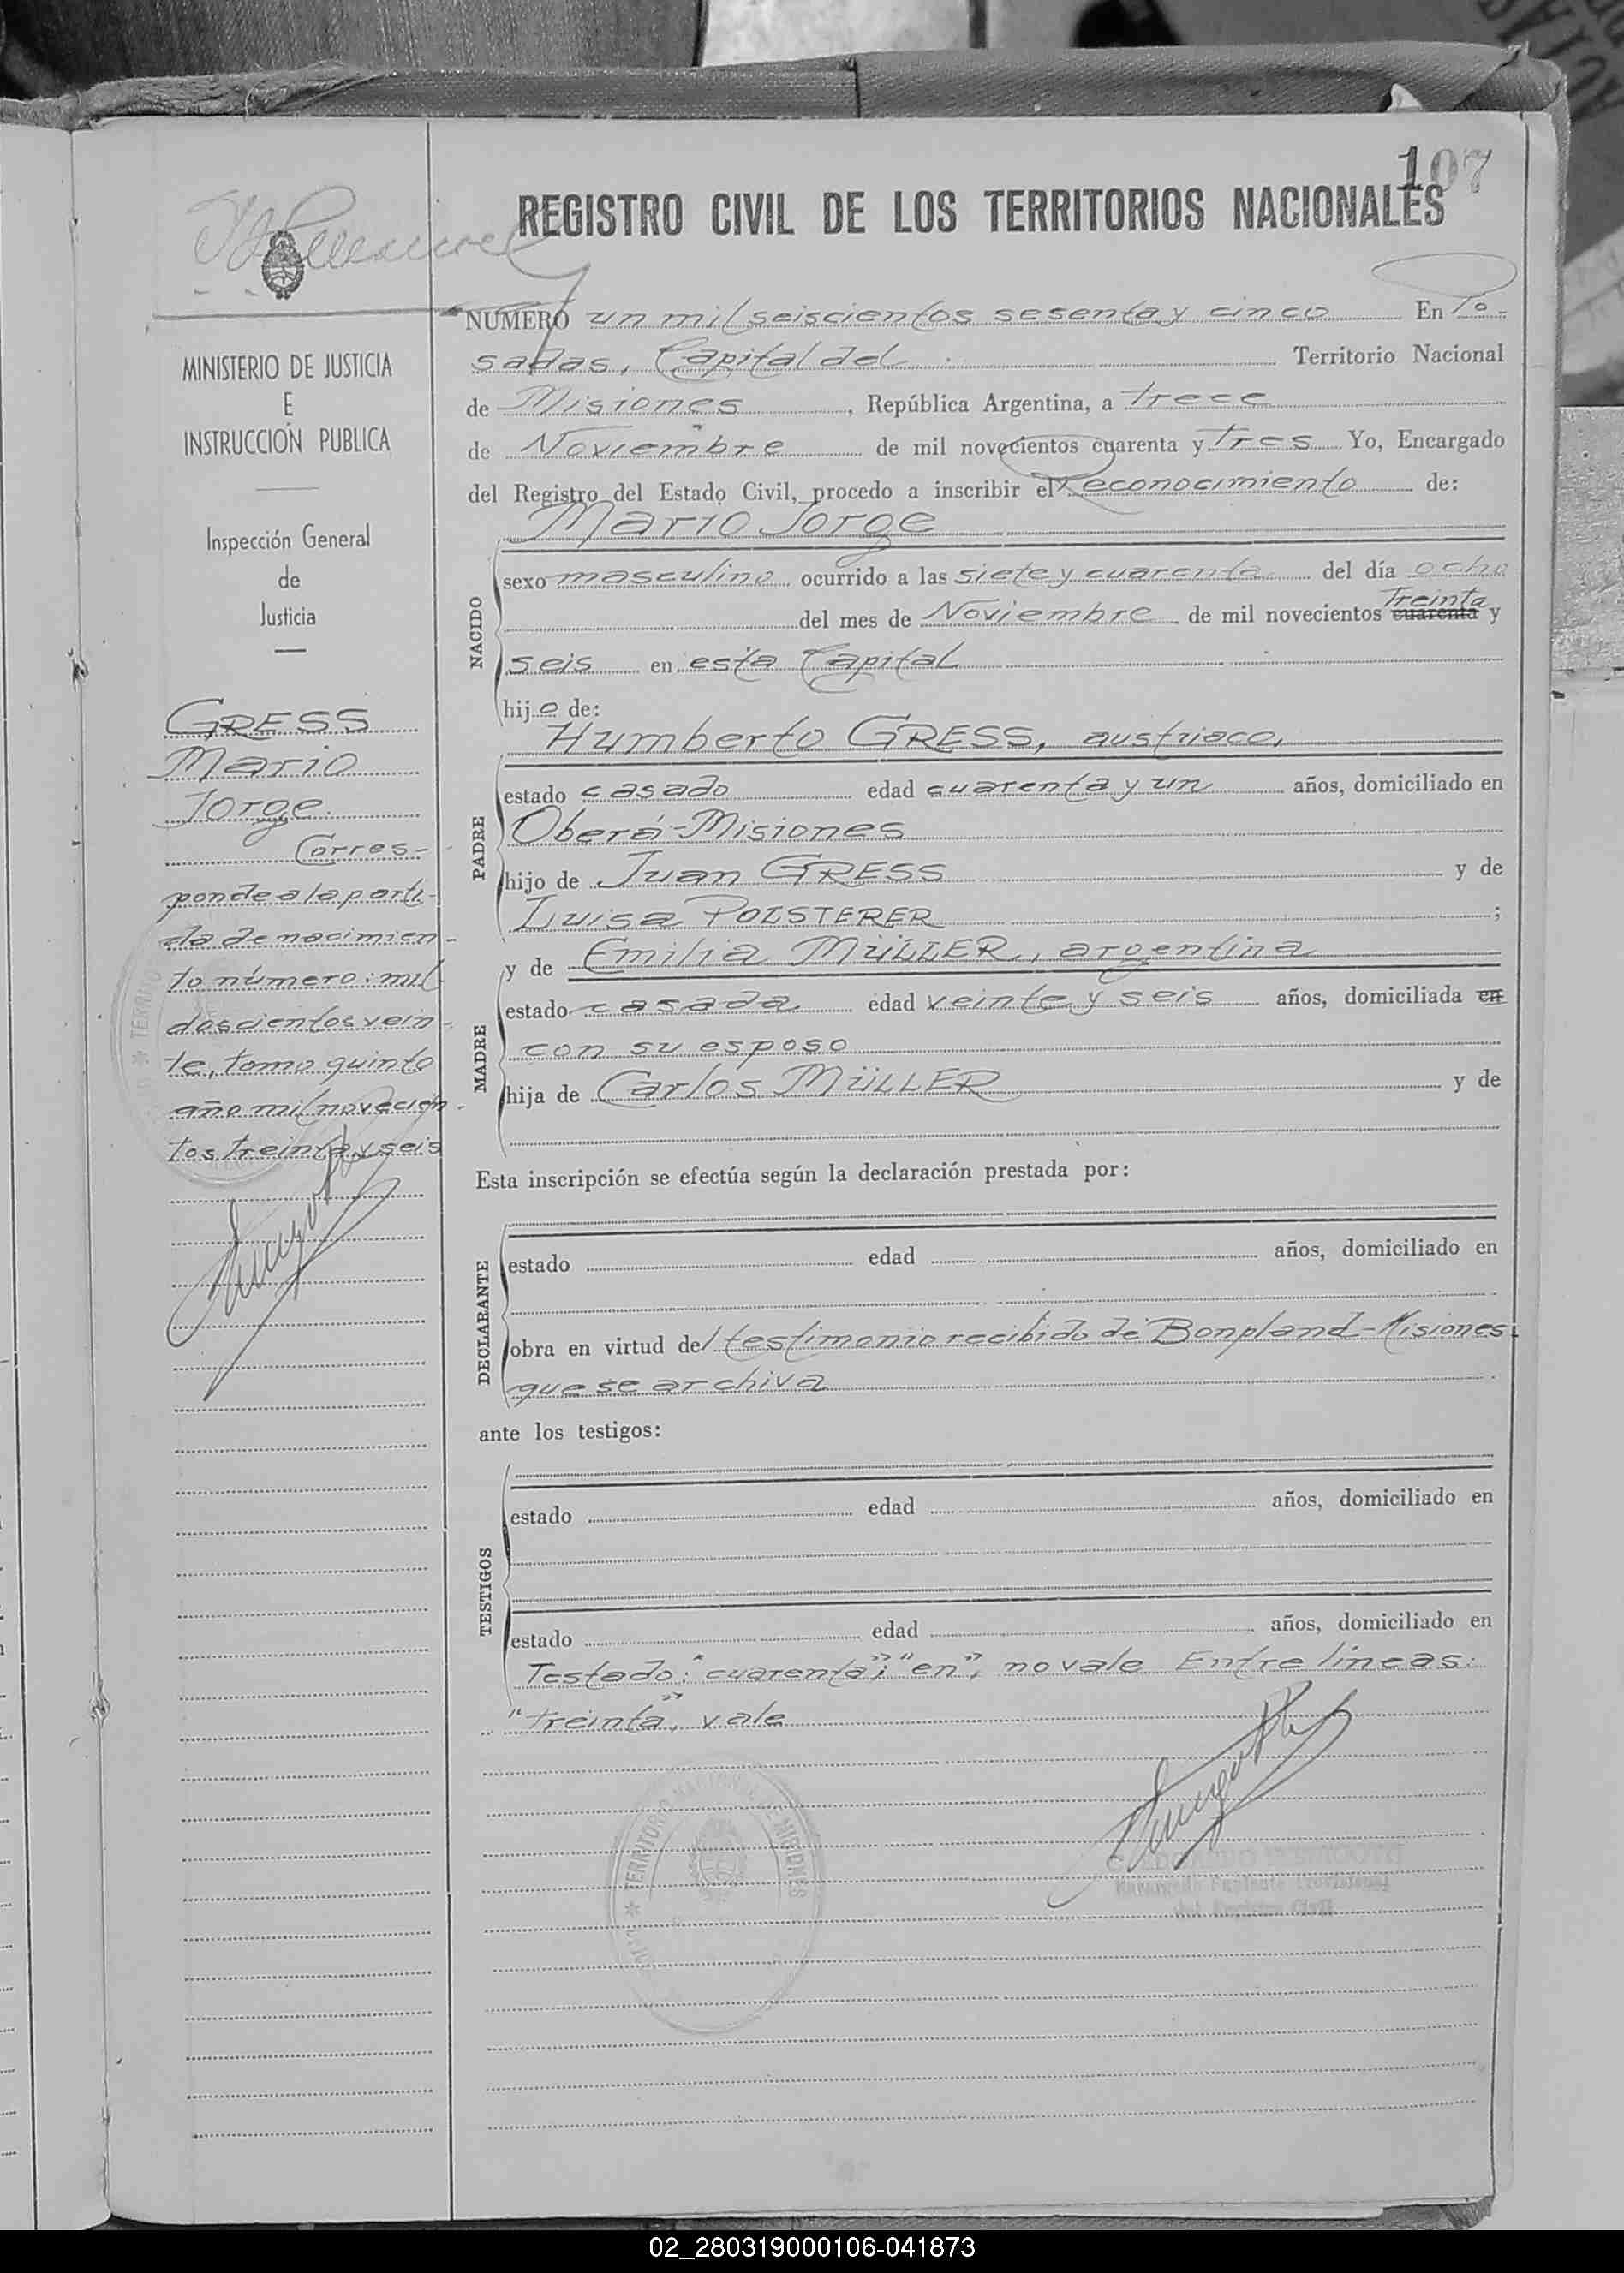 107
REGISTRO CIVIL DE LOS TERRITORIOS NACIONALES
MINISTERIO DE JUSTICIA
E
INSTRUCCIÓN PUBLICA
Inspección General
de
Justicia
GRESS
Mario
Jorge.
Corres-
ponde a la parti-
da de nacimien-
to número: mil
doscientos vein-
te, tomo quinto
año mil novecien-
tos treinta y seis
NUMERO un mil seiscientos sesenta y cinco En Po-
sadas, Capital del Territorio Nacional
de Misiones, República Argentina, a trece
de Noviembre de mil novecientos cuarenta y tres Yo, Encargado
del Registro del Estado Civil, procedo a inscribir el Reconocimiento de:
Mario Jorge
NACIDO
sexo masculino ocurrido a las siete y cuarenta del día ocho
treinta
del mes de Noviembre de mil novecientos cuarenta y
seis en esta Capital
hijo de:
Humberto GRESS, austriaco,
PADRE
estado casado edad cuarenta y un años, domiciliado en
Oberá-Misiones
hijo de Juan GRESS y de
Luisa POLSTERER ;
y de Emilia MÜLLER, argentina
MADRE
estado casada edad veinte y seis años, domiciliada en
con su esposo
hija de Carlos MÜLLER y de
Esta inscripción se efectúa según la declaración prestada por:
DECLARANTE
estado edad años, domiciliado en
obra en virtud del testimonio recibido de Bonpland-Misiones,
que se archiva
ante los testigos:
TESTIGOS
estado edad años, domiciliado en
estado edad años, domiciliado en
Testado: "cuarenta"; "en", no vale Entre líneas:
"treinta", vale
TERRITORIO NACIONAL DE MISIONES
del Registro Civil
02_280319000106-041873